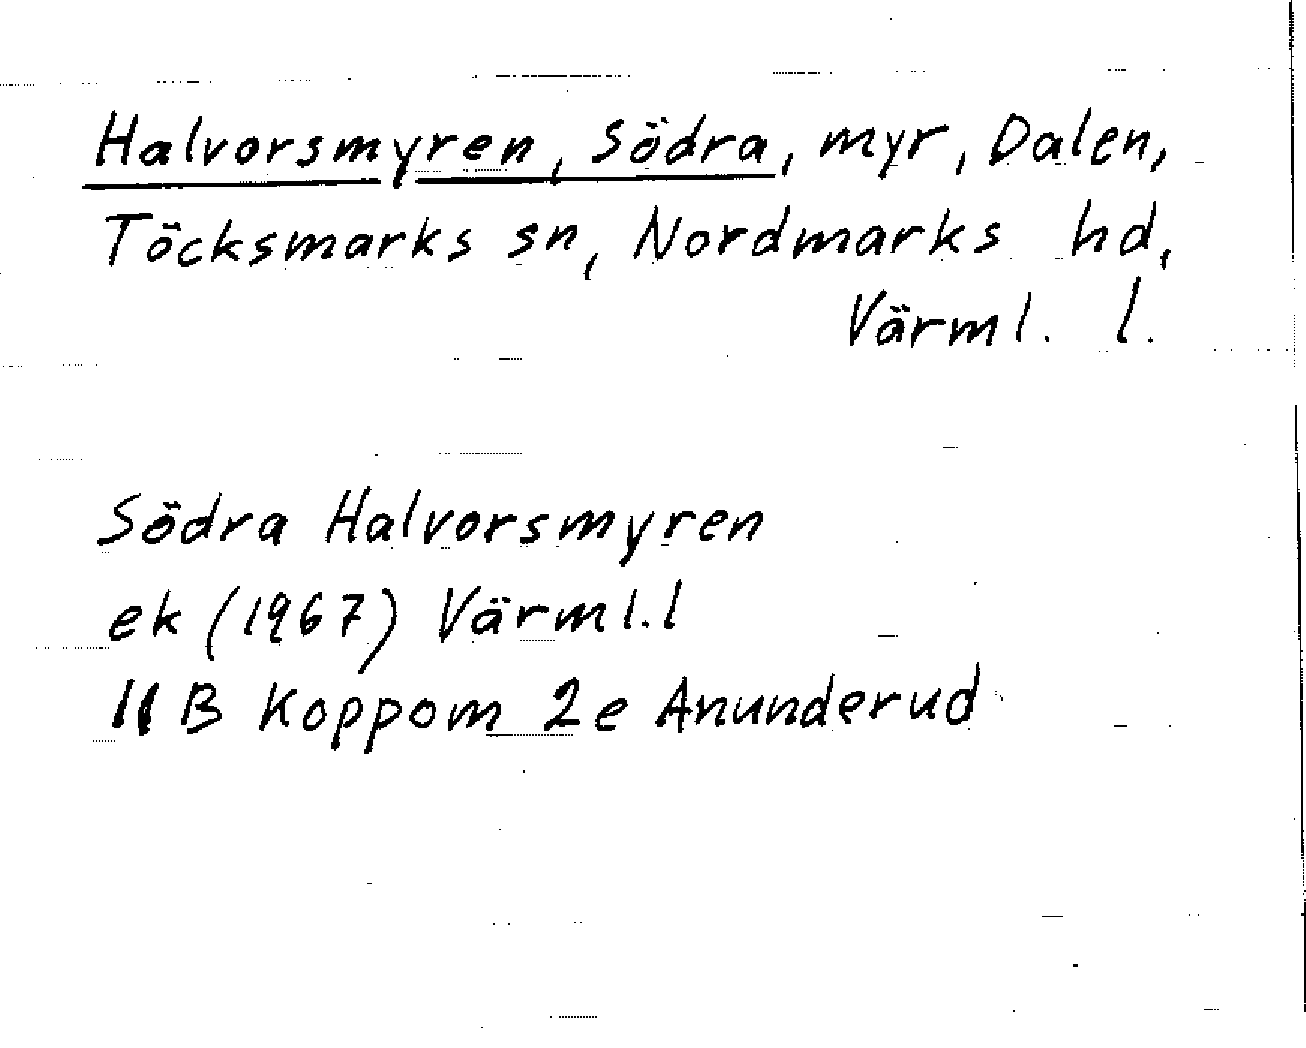 Halvorsmyren, Södra, myr, Dalen,
Töcksmarks sn, Nordmarks hd,
Värml. l.
Södra Halvorsmyren
ek (1967) Värml.l
11 B Koppom 2e Anunderud